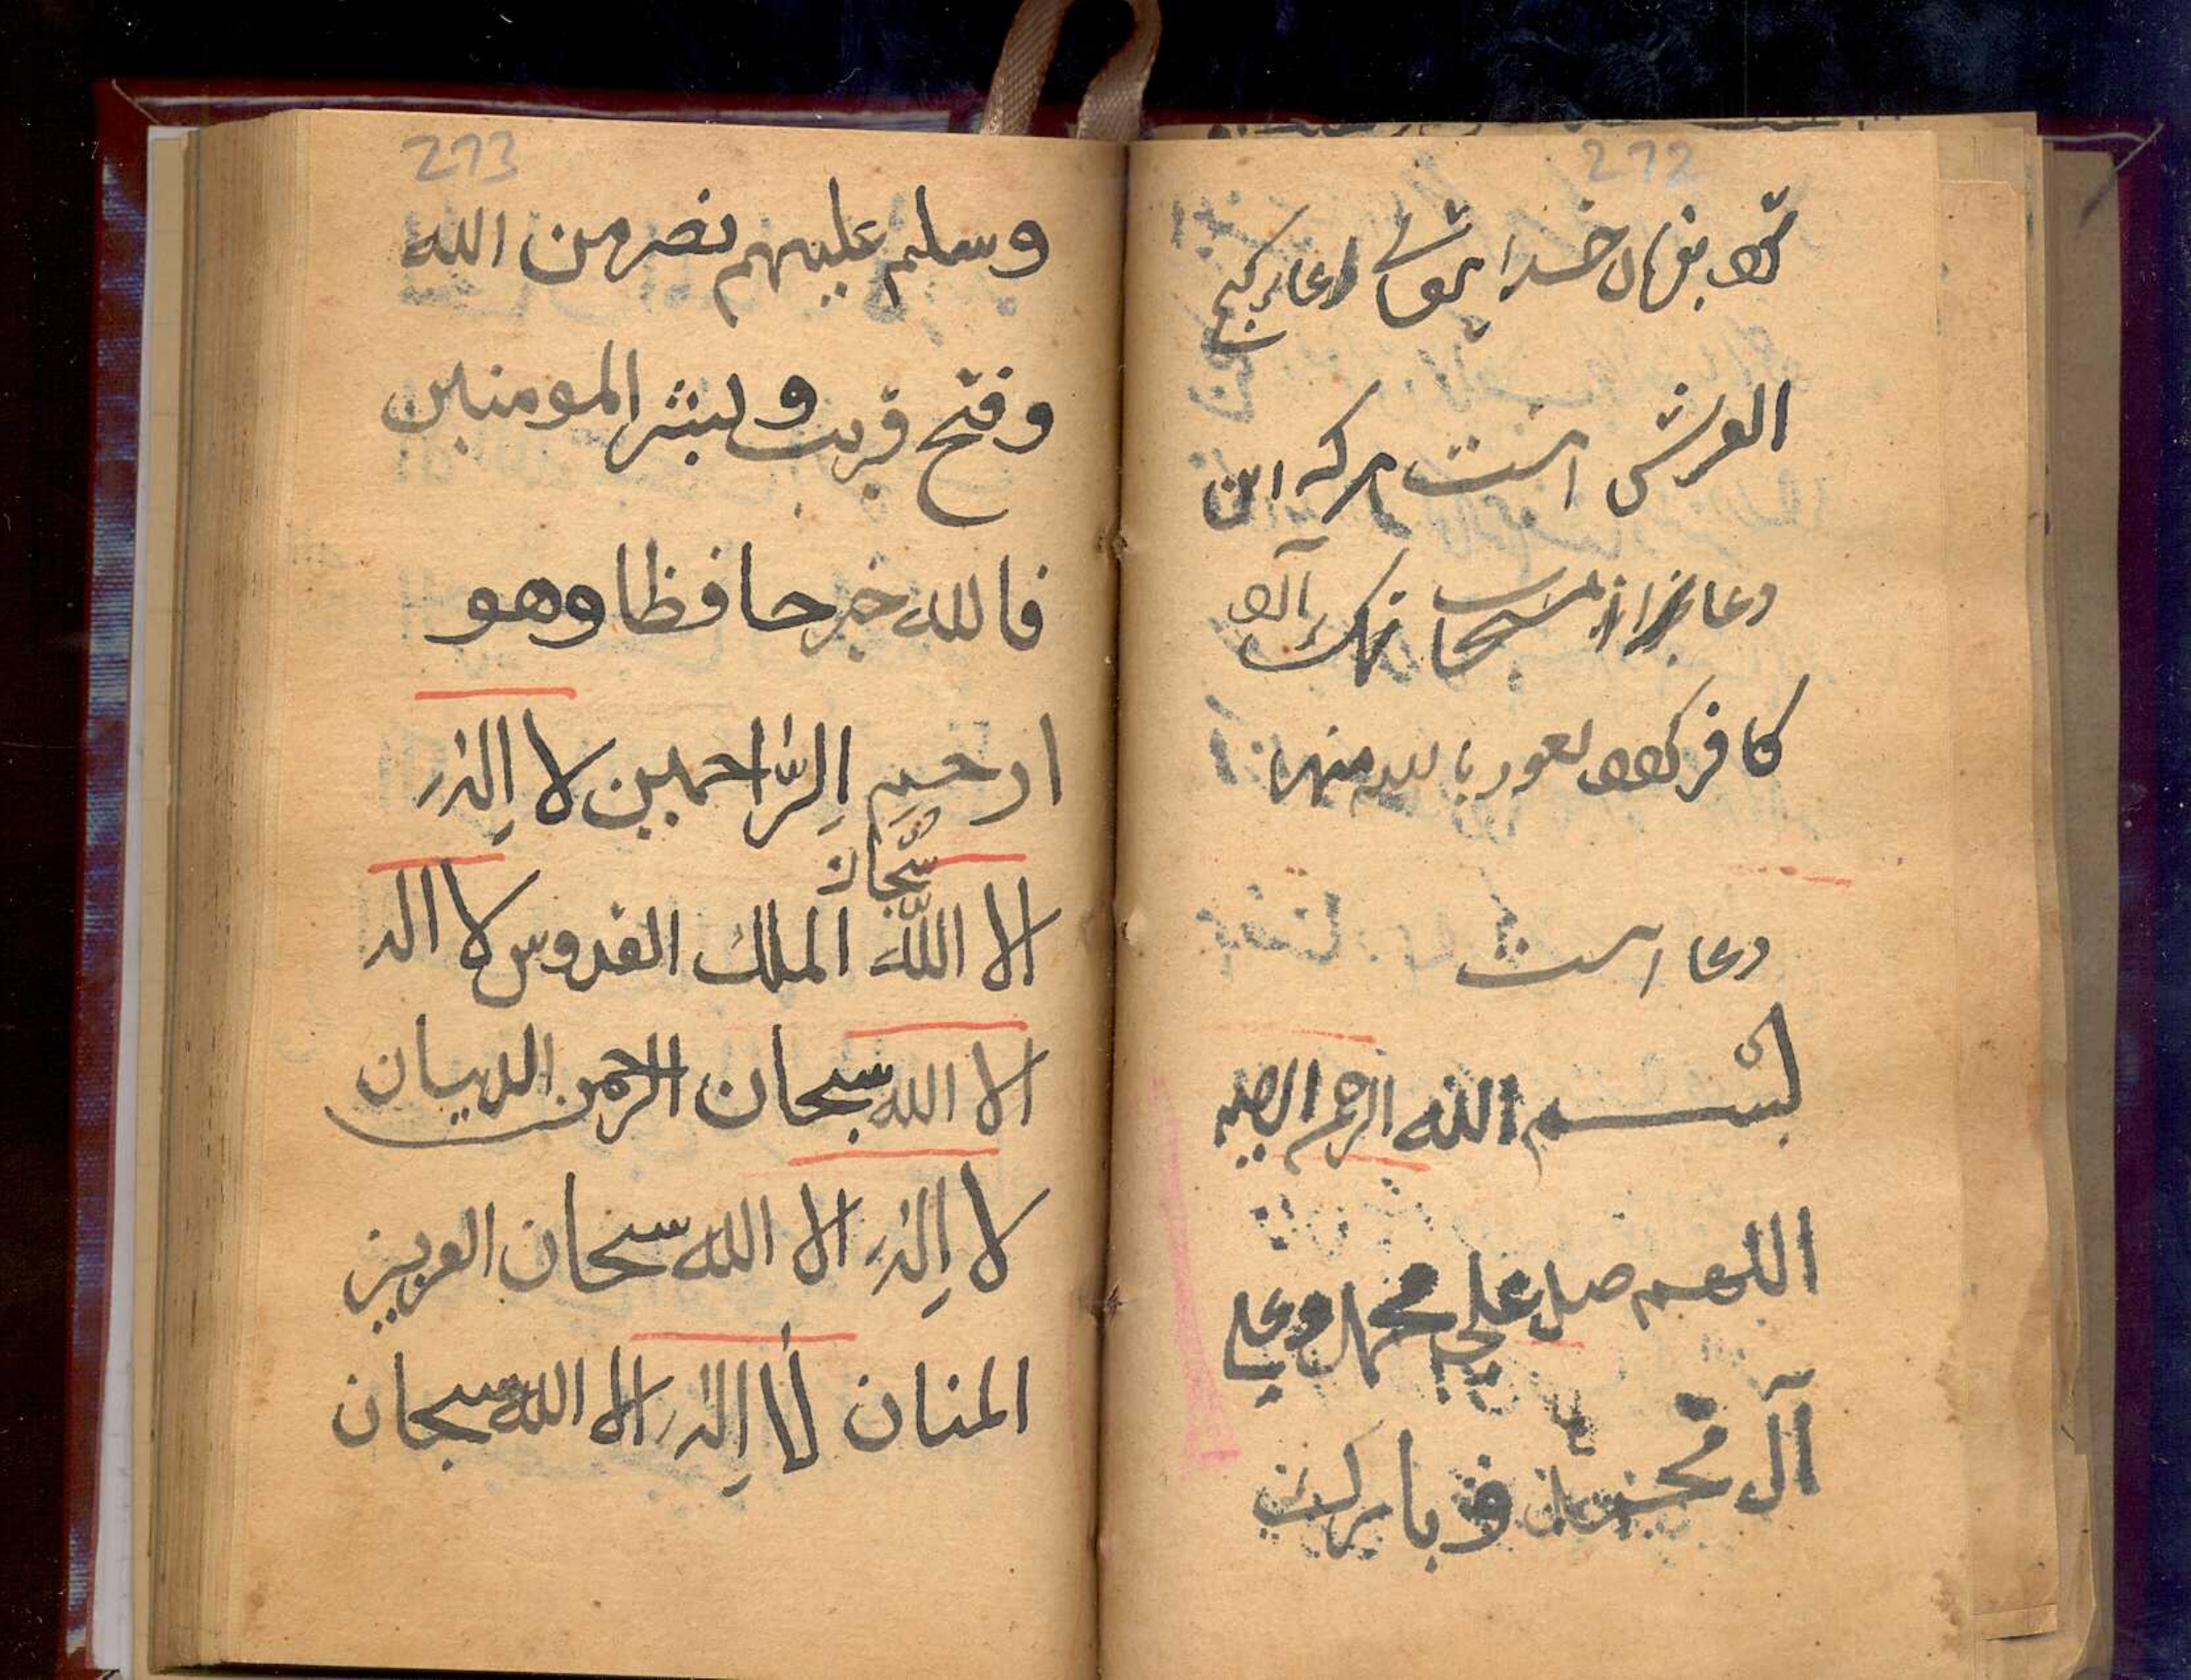 272
خدا دعا گنج
العرش است هر که این
دعا را
کافر کردد نعوذ بالله منها
دعا است
بسم الله الرحمن الرحیم
اللهم صل علی محمد وعلی
آل محمد و بارک
273
وسلم علیهم نصر من الله
وفتح قریب وبشر المومنین
فالله خیر حافظا وهو
ارحم الراحمین لا اله
الا الله سبحان الملک القدوس لا اله
الا الله سبحان الرحمن الدیان
لا اله الا الله سبحان العزیز
المنان لا اله الا الله سبحان